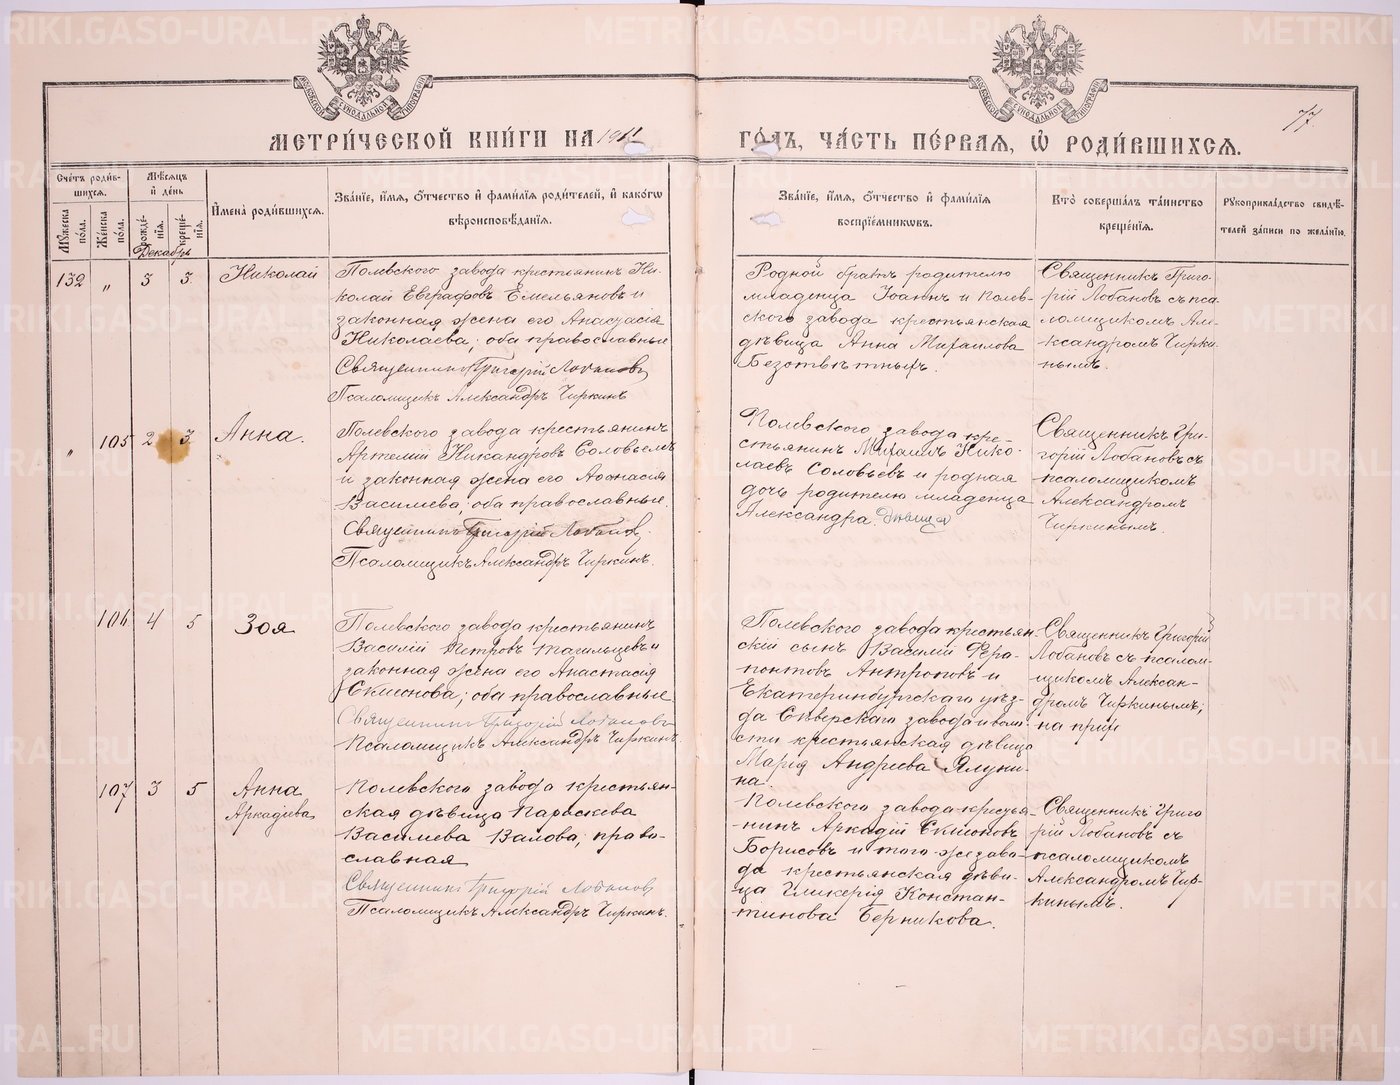 МЕТРИ́ЧЕСКОЙ КНИ́ГИ НА 1911
ГО́ДЪ, ЧА́СТЬ ПЕ́РВАЯ, Ѡ҆ РОДИ́ВШИХСѦ.
77
Сче́тъ роди́в-
шихся.
Мѣ́сяцъ
и҆ де́нь
И҆мена̀ роди́вшихся.
Зва́нїе, и҆́мя, ѻ҆́тчество и҆ фами́лїя роди́телей, и҆ како́гѡ
вѣроисповѣ́данїя.
Зва́нїе, и҆́мя, ѻ҆́тчество и҆ фами́лїя
воспрїе́мниковъ.
Кто̀ соверша́лъ та́инство
креще́нїя.
Рукоприкла́дство свидѣ́-
телей за́писи по жела́нїю.
Му́жеска
по́ла.
Же́нска
по́ла.
рожде́-
нїя.
креще́-
нїя.
Декабрь
132 " 3 3 Николай
Полевского завода крестьянинъ Ни-
колай Евграфовъ Емельяновъ и
законная жена его Анастасія
Николаева, оба православные
Священникъ Григорій Лобановъ
Псаломщикъ Александръ Чиркинъ
Родной братъ родителю
младенца Іоаннъ и Полев-
ского завода крестьянская
дѣвица Анна Михаилова
Безотвѣтныхъ.
Священникъ Григо-
рій Лобановъ съ пса-
ломщикомъ Але-
ксандромъ Чирки-
нымъ.
" 105 2 3 Анна.
Полевского завода крестьянинъ
Артемій Никандровъ Соловьевъ
и законная жена его Афанасія
Василіева, оба православные.
Священникъ Григорій Лобановъ.
Псаломщикъ Александръ Чиркинъ.
Полевского завода кре-
стьянинъ Михаилъ Нико-
лаевъ Соловьевъ и родная
дочь родителю младенца
Александра. дѣвица
Священникъ Гри-
горій Лобановъ съ
псаломщикомъ
Александромъ
Чиркинымъ.
106 4 5 Зоя
Полевского завода крестьянинъ
Василій Петровъ Тагильцевъ и
законная жена его Анастасія
Симонова, оба православные
Священникъ Григорій Лобановъ
Псаломщикъ Александръ Чиркинъ
Полевского завода крестьян-
скій сынъ Василій Фера-
понтовъ Антроповъ и
Екатеринбургскаго уѣз-
да Сѣверскаго завода и воло-
сти крестьянская дѣвица
Марія Андреева Ялуни-
на.
Священникъ Григорій
Лобановъ съ псалом-
щикомъ Алексан-
дромъ Чиркинымъ;
107 3 5 Анна
Аркадіева
Полевского завода крестьян-
ская дѣвица Параскева
Василіева Валова, право-
славная
Священникъ Григорій Лобановъ
Псаломщикъ Александръ Чиркинъ.
Полевского завода крестья-
нинъ Аркадій Симоновъ
Борисовъ и того-же заво-
да крестьянская дѣви-
ца Гликерія Констан-
тинова Берникова.
Священникъ Григо-
рій Лобановъ съ
псаломщикомъ
Александромъ Чир-
кинымъ.
METRIKI.GASO-URAL.RU